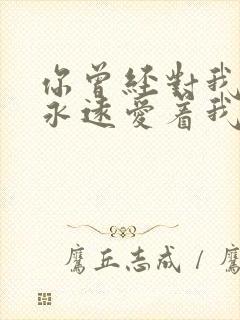 你曾經對我
永遠愛着我
鷹丘志成 / 鷹